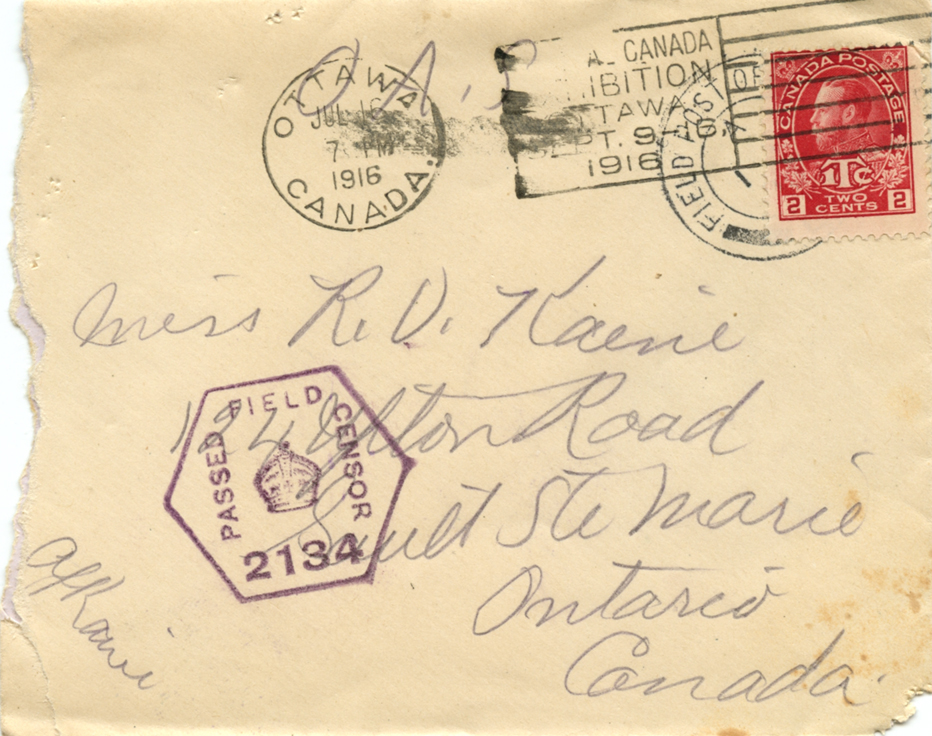 O A S
OTTAWA
JUL 16
7 PM
1916
CANADA.
AL CANADA
IBITION
TTAWA
PT. 9-16,
1916
FIELD POST OF
CANADA POSTAGE
1Tc
2 TWO CENTS 2
Miss R. D. Kaeine
Road
Sault Ste Marie
Ontario
Canada.
PASSED FIELD CENSOR
2134